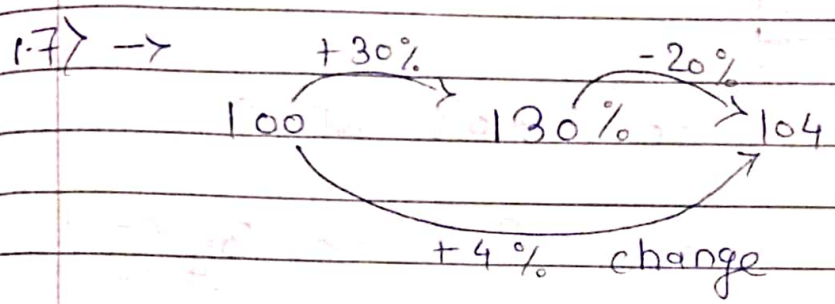 1.7> → +30% -20%
100 130% 104
+4% change